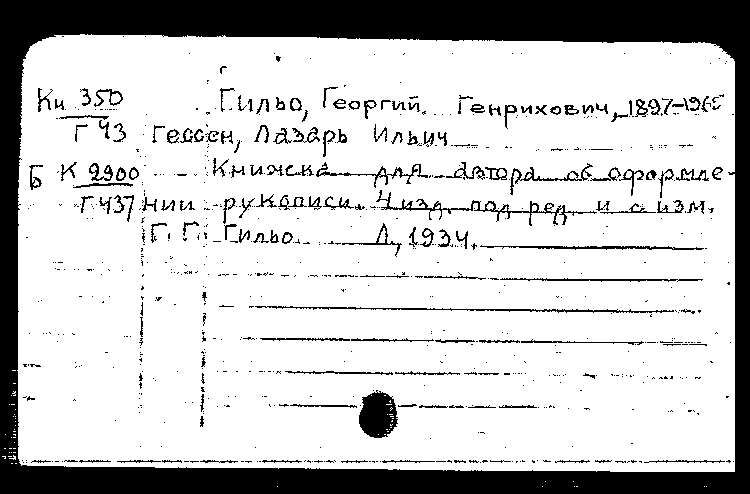 Кн 350 Гильо, Георгий Генрихович, 1897-1965
Г 43 Гессен, Лазарь Ильич
Б К 2900 Книжка для автора об оформле-
Г 437 нии рукописи. 4 изд. под ред. и с изм.
Г. Г. Гильо Л., 1934.